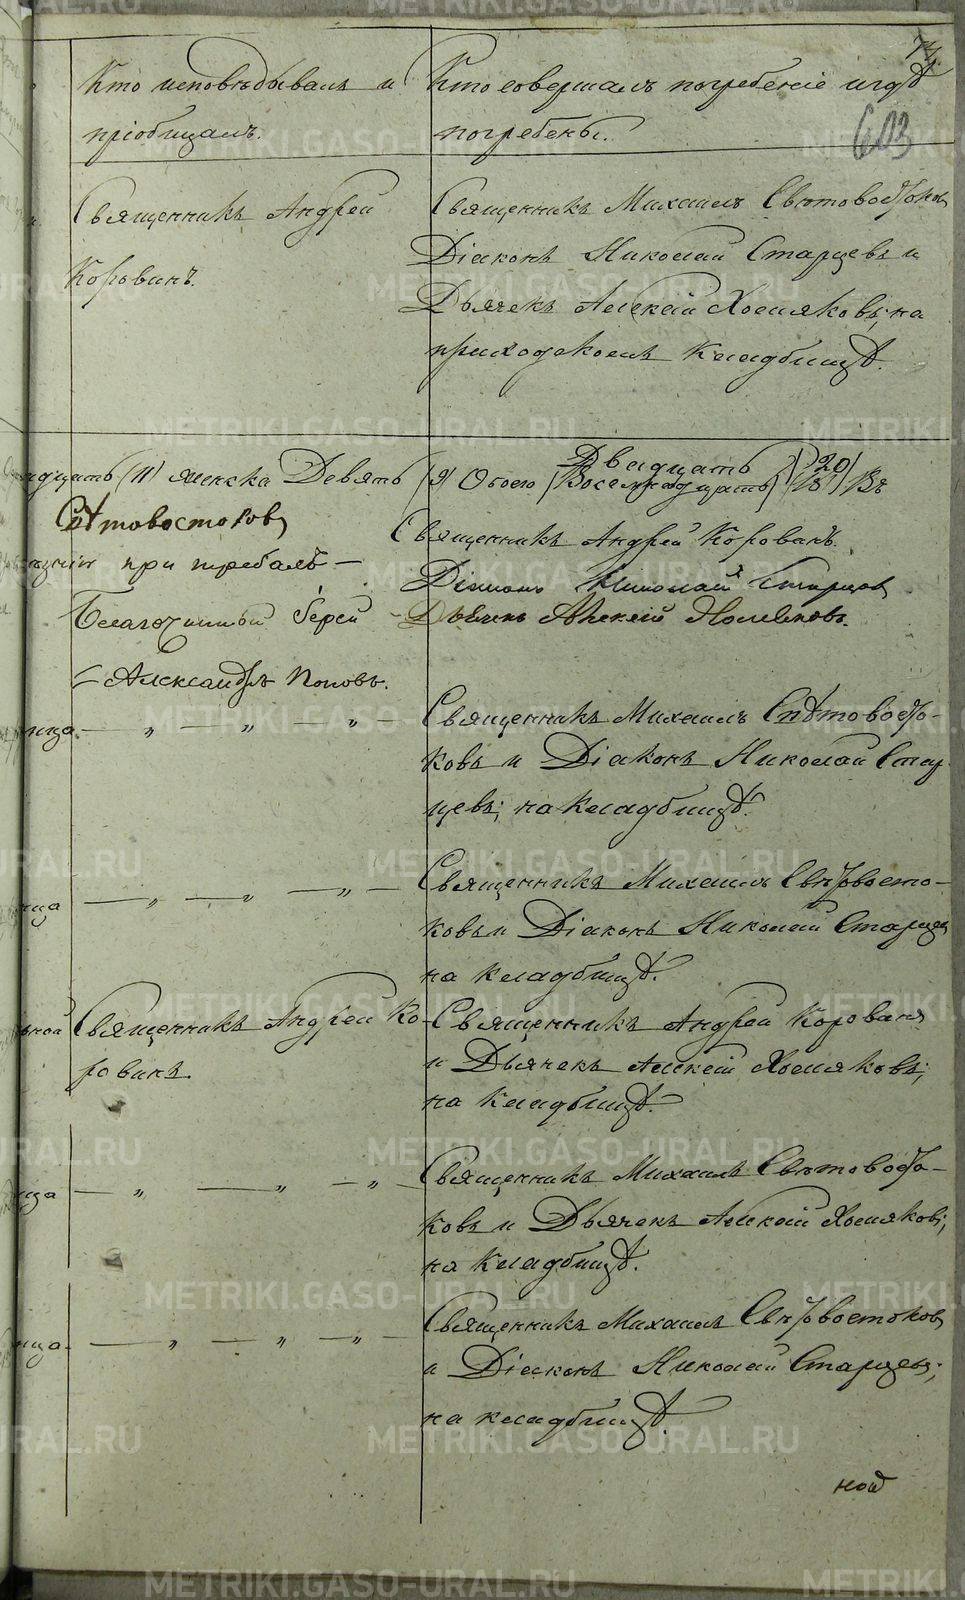 74.
603
Кто исповѣдывалъ и
пріобщалъ.
Кто совершалъ погребеніе и гдѣ
погребены.
Священникъ Андрей
Корованъ.
Священникъ Михаилъ Свѣтовостоков
Діаконъ Николай Старцевъ и
Дьячекъ Алексій Хомяковъ; на
приходскомъ кладбищѣ.
адцать (11) женска Девять (9) Обоего Восемнадцать Двадцать 20) Въ
Свѣтовостоковъ
при требахъ —
Благочинный Іерей
Александръ Поповъ.
Священникъ Андрей Корованъ.
Діаконъ Николай Старцовъ
Дьячекъ Алексій Хомяковъ.
ница. — „ — „ — „ —
Священникъ Михаилъ Свѣтовосто-
ковъ и Діаконъ Николай Стар
цевъ; на кладбищѣ.
ица — „ — „ — „ —
Священникъ Михаилъ Свѣтовосто-
ковъ и Діаконъ Николай Старцев
на кладбищѣ.
ьной
Священникъ Андрей Ко-
рованъ.
Священникъ Андрей Корованъ
и Дьячекъ Алексій Хомяковъ;
на кладбищѣ. —
ица — „ — „ — „ —
Священникъ Михаилъ Свѣтовосто-
ковъ и Дьячекъ Алексій Хомяковъ;
на кладбищѣ.
ица. — „ — „ — „ —
Священникъ Михаилъ Свѣтовостоковъ
и Діаконъ Николай Старцевъ;
на кладбищѣ.
METRIKI.GASO-URAL.RU